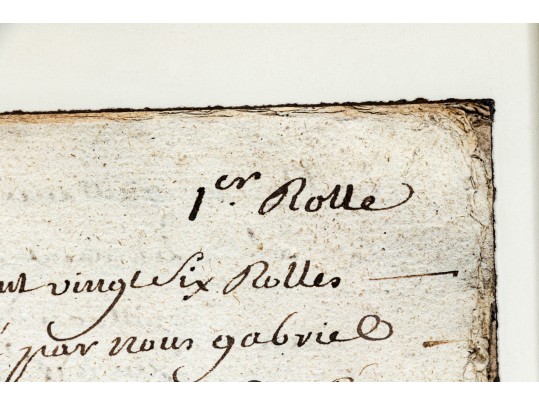 1er Rolle
vingt Six Rolles
par nous gabriel